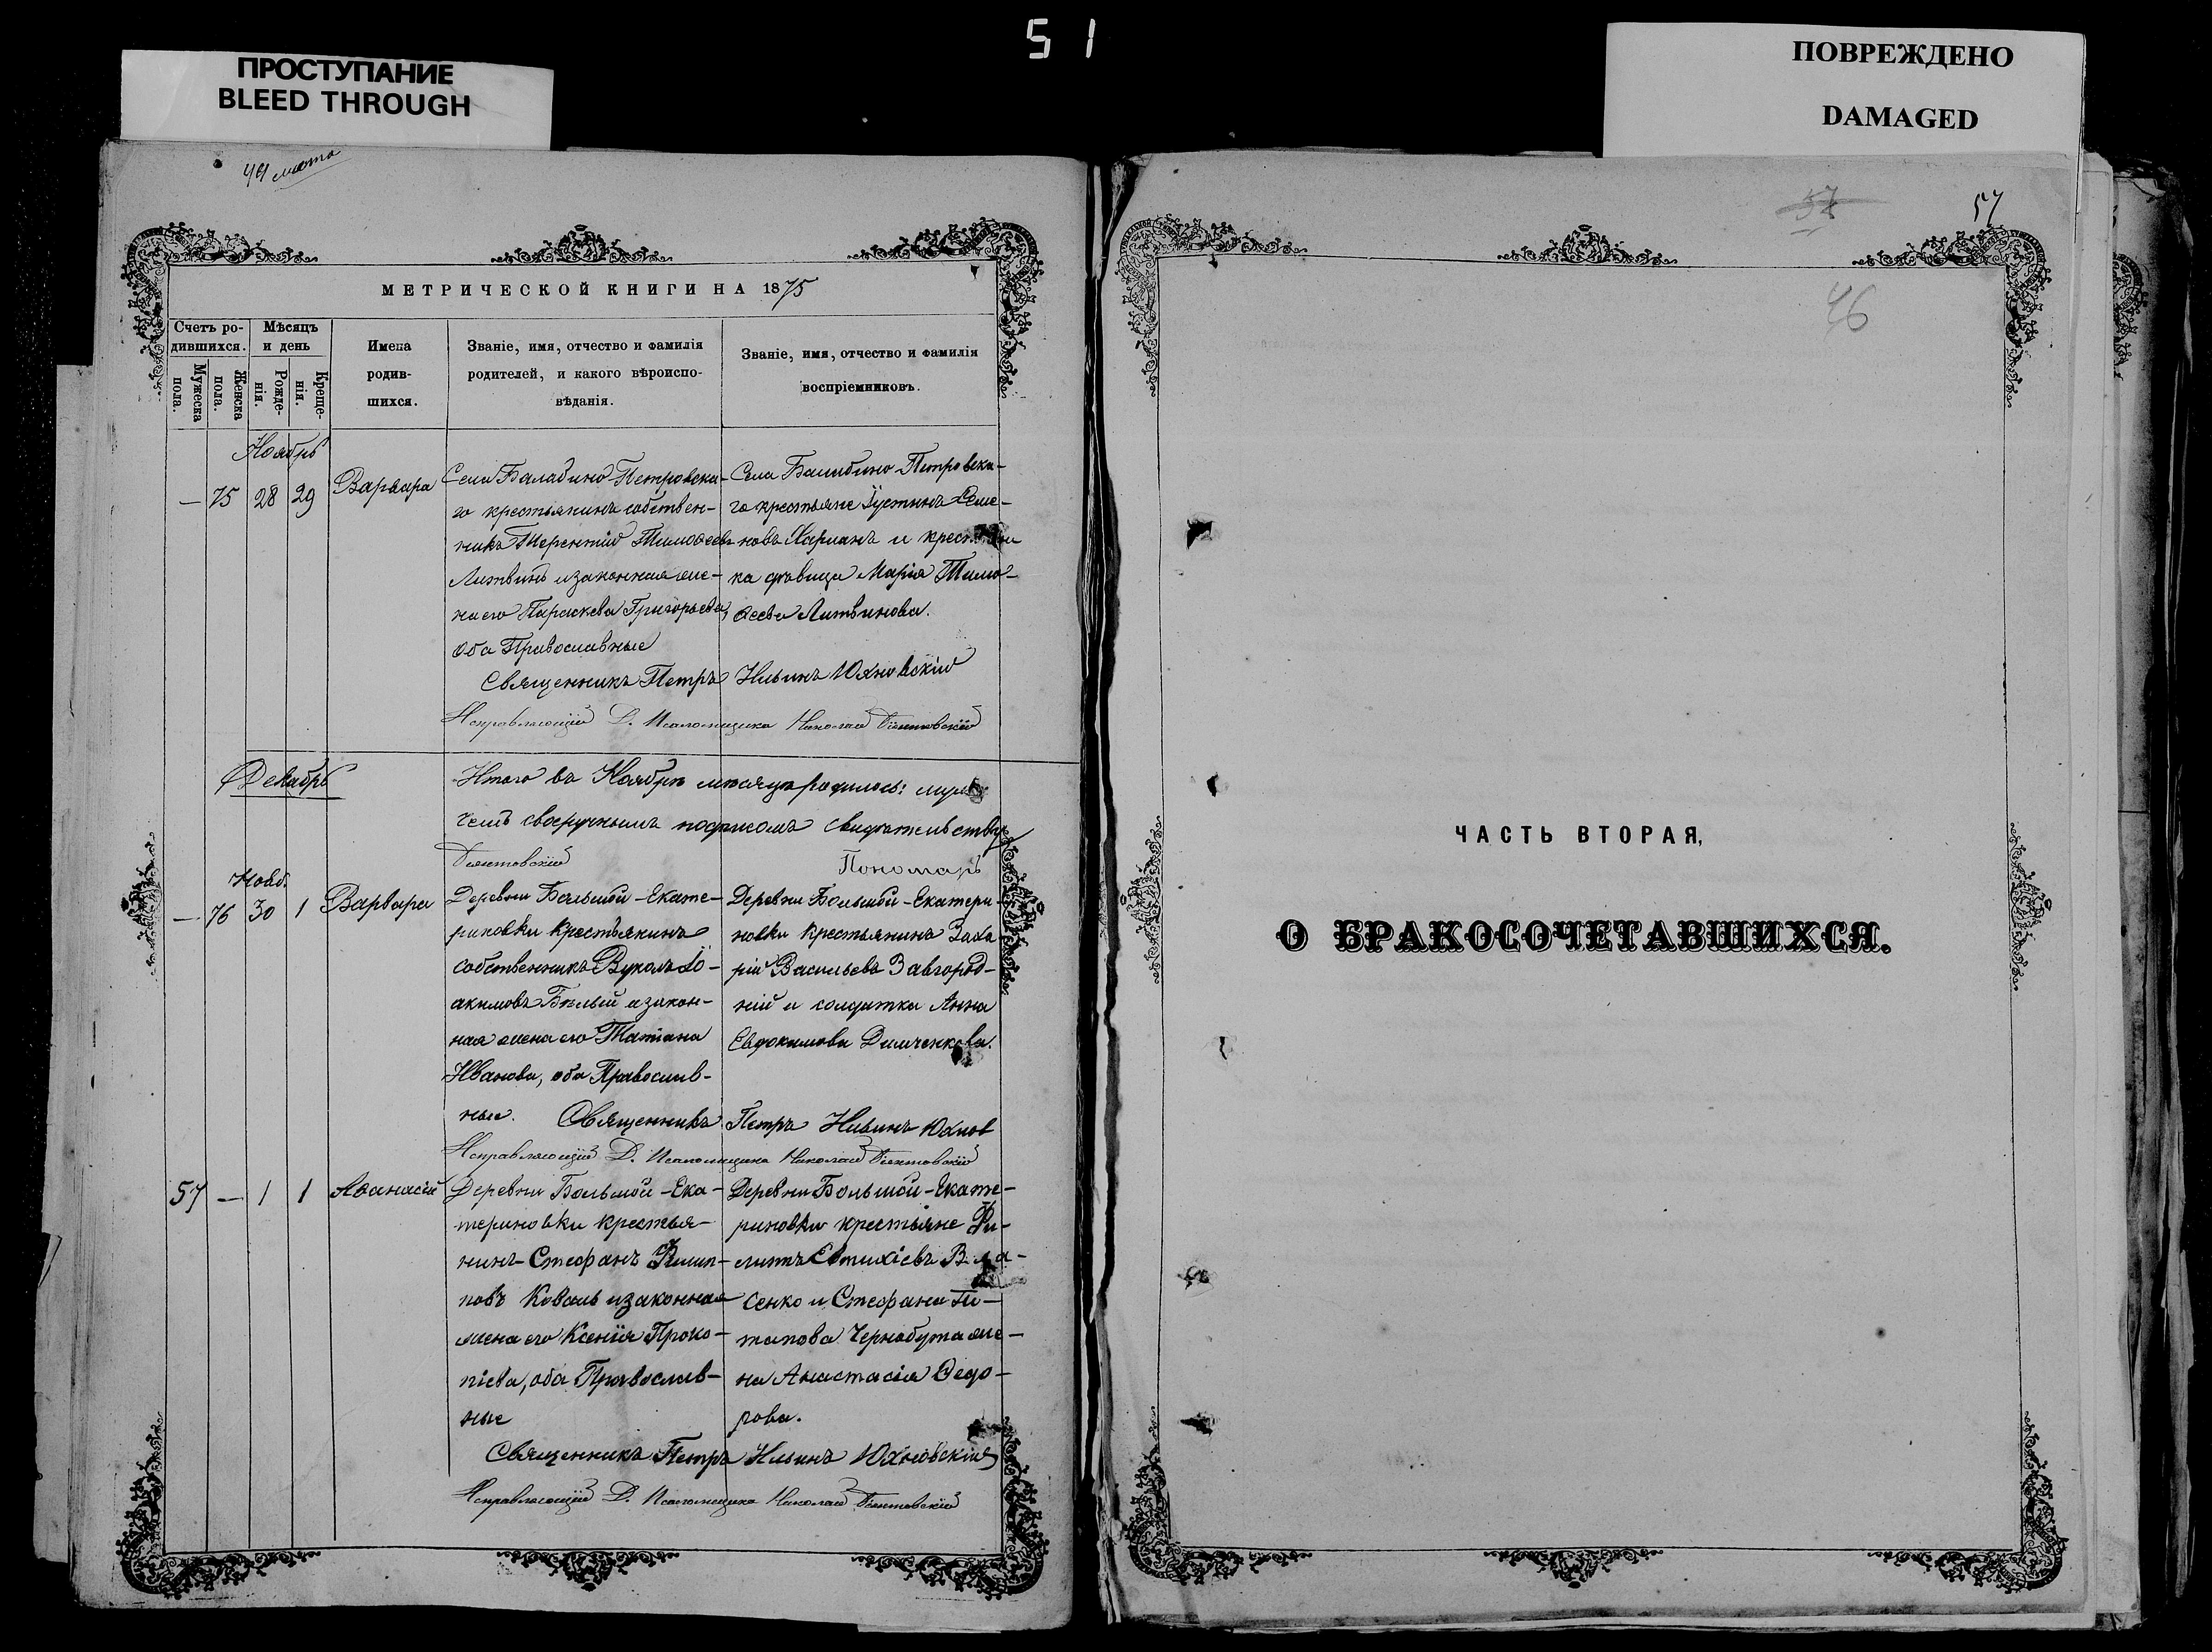 51
ПРОСТУПАНИЕ
BLEED THROUGH
ПОВРЕЖДЕНО
DAMAGED
МЕТРИЧЕСКОЙ КНИГИ НА 1875
Счетъ ро-
дившихся.
Мужеска
пола.
Женска
пола.
Мѣсяцъ
и день
Рожде-
нія.
Креще-
нія.
Имена
родив-
шихся.
Званіе, имя, отчество и фамилія
родителей, и какого вѣроиспо-
вѣданія.
Званіе, имя, отчество и фамилія
воспріемниковъ.
Ноябрь
— 75 28 29 Варвара
Села Балабино-Петровска-
го крестьянинъ собствен-
никъ Терентій Тимоѳеевъ
Литвинъ и законная же-
на его Параскева Григорьева,
оба Православные
Села Балабино-Петровска-
го крестьяне Іустинъ Семе-
новъ Харманъ и
ка дѣвица Марія Тимо-
ѳеева Литвинова.
Священникъ Петръ Ильинъ Юхновскій
Исправляющій Д. Псаломщика Николай
Декабрь
Итого въ Ноябрѣ мѣсяцѣ родилось:
чемъ своеручнымъ подписомъ
Пономарь
Нояб.
— 76 30 1 Варвара
Деревни Большой-Екате-
риновки крестьянинъ
собственникъ Вуколъ Іо-
акимовъ Бѣлый и закон-
ная жена его Татіана
Иванова, оба Православ-
ные.
Деревни Большой-Екатери-
новки крестьянинъ Заха
рій Васильевъ Завгород-
ній и солдатка Анна
Евдокимова Демченкова.
Священникъ Петръ Ильинъ Юхнов
Исправляющій Д. Псаломщика Николай
57 — 1 1 Аѳанасій
Деревни Большой-Ека-
териновки крестья-
нинъ Стефанъ Филип-
повъ Коваль и законная
жена его Ксенія Проко-
піева, оба Православ-
ные
Деревни Большой-Екате-
риновки крестьяне Фи-
липъ Евтихіевъ
сенко и Стефана По-
тапова Чернобута же-
на Анастасія Ѳедо-
рова.
Священникъ Петръ Ильинъ Юхновскій
Исправляющій Д. Псаломщика Николай
57
46
ЧАСТЬ ВТОРАЯ,
О БРАКОСОЧЕТАВШИХСЯ.